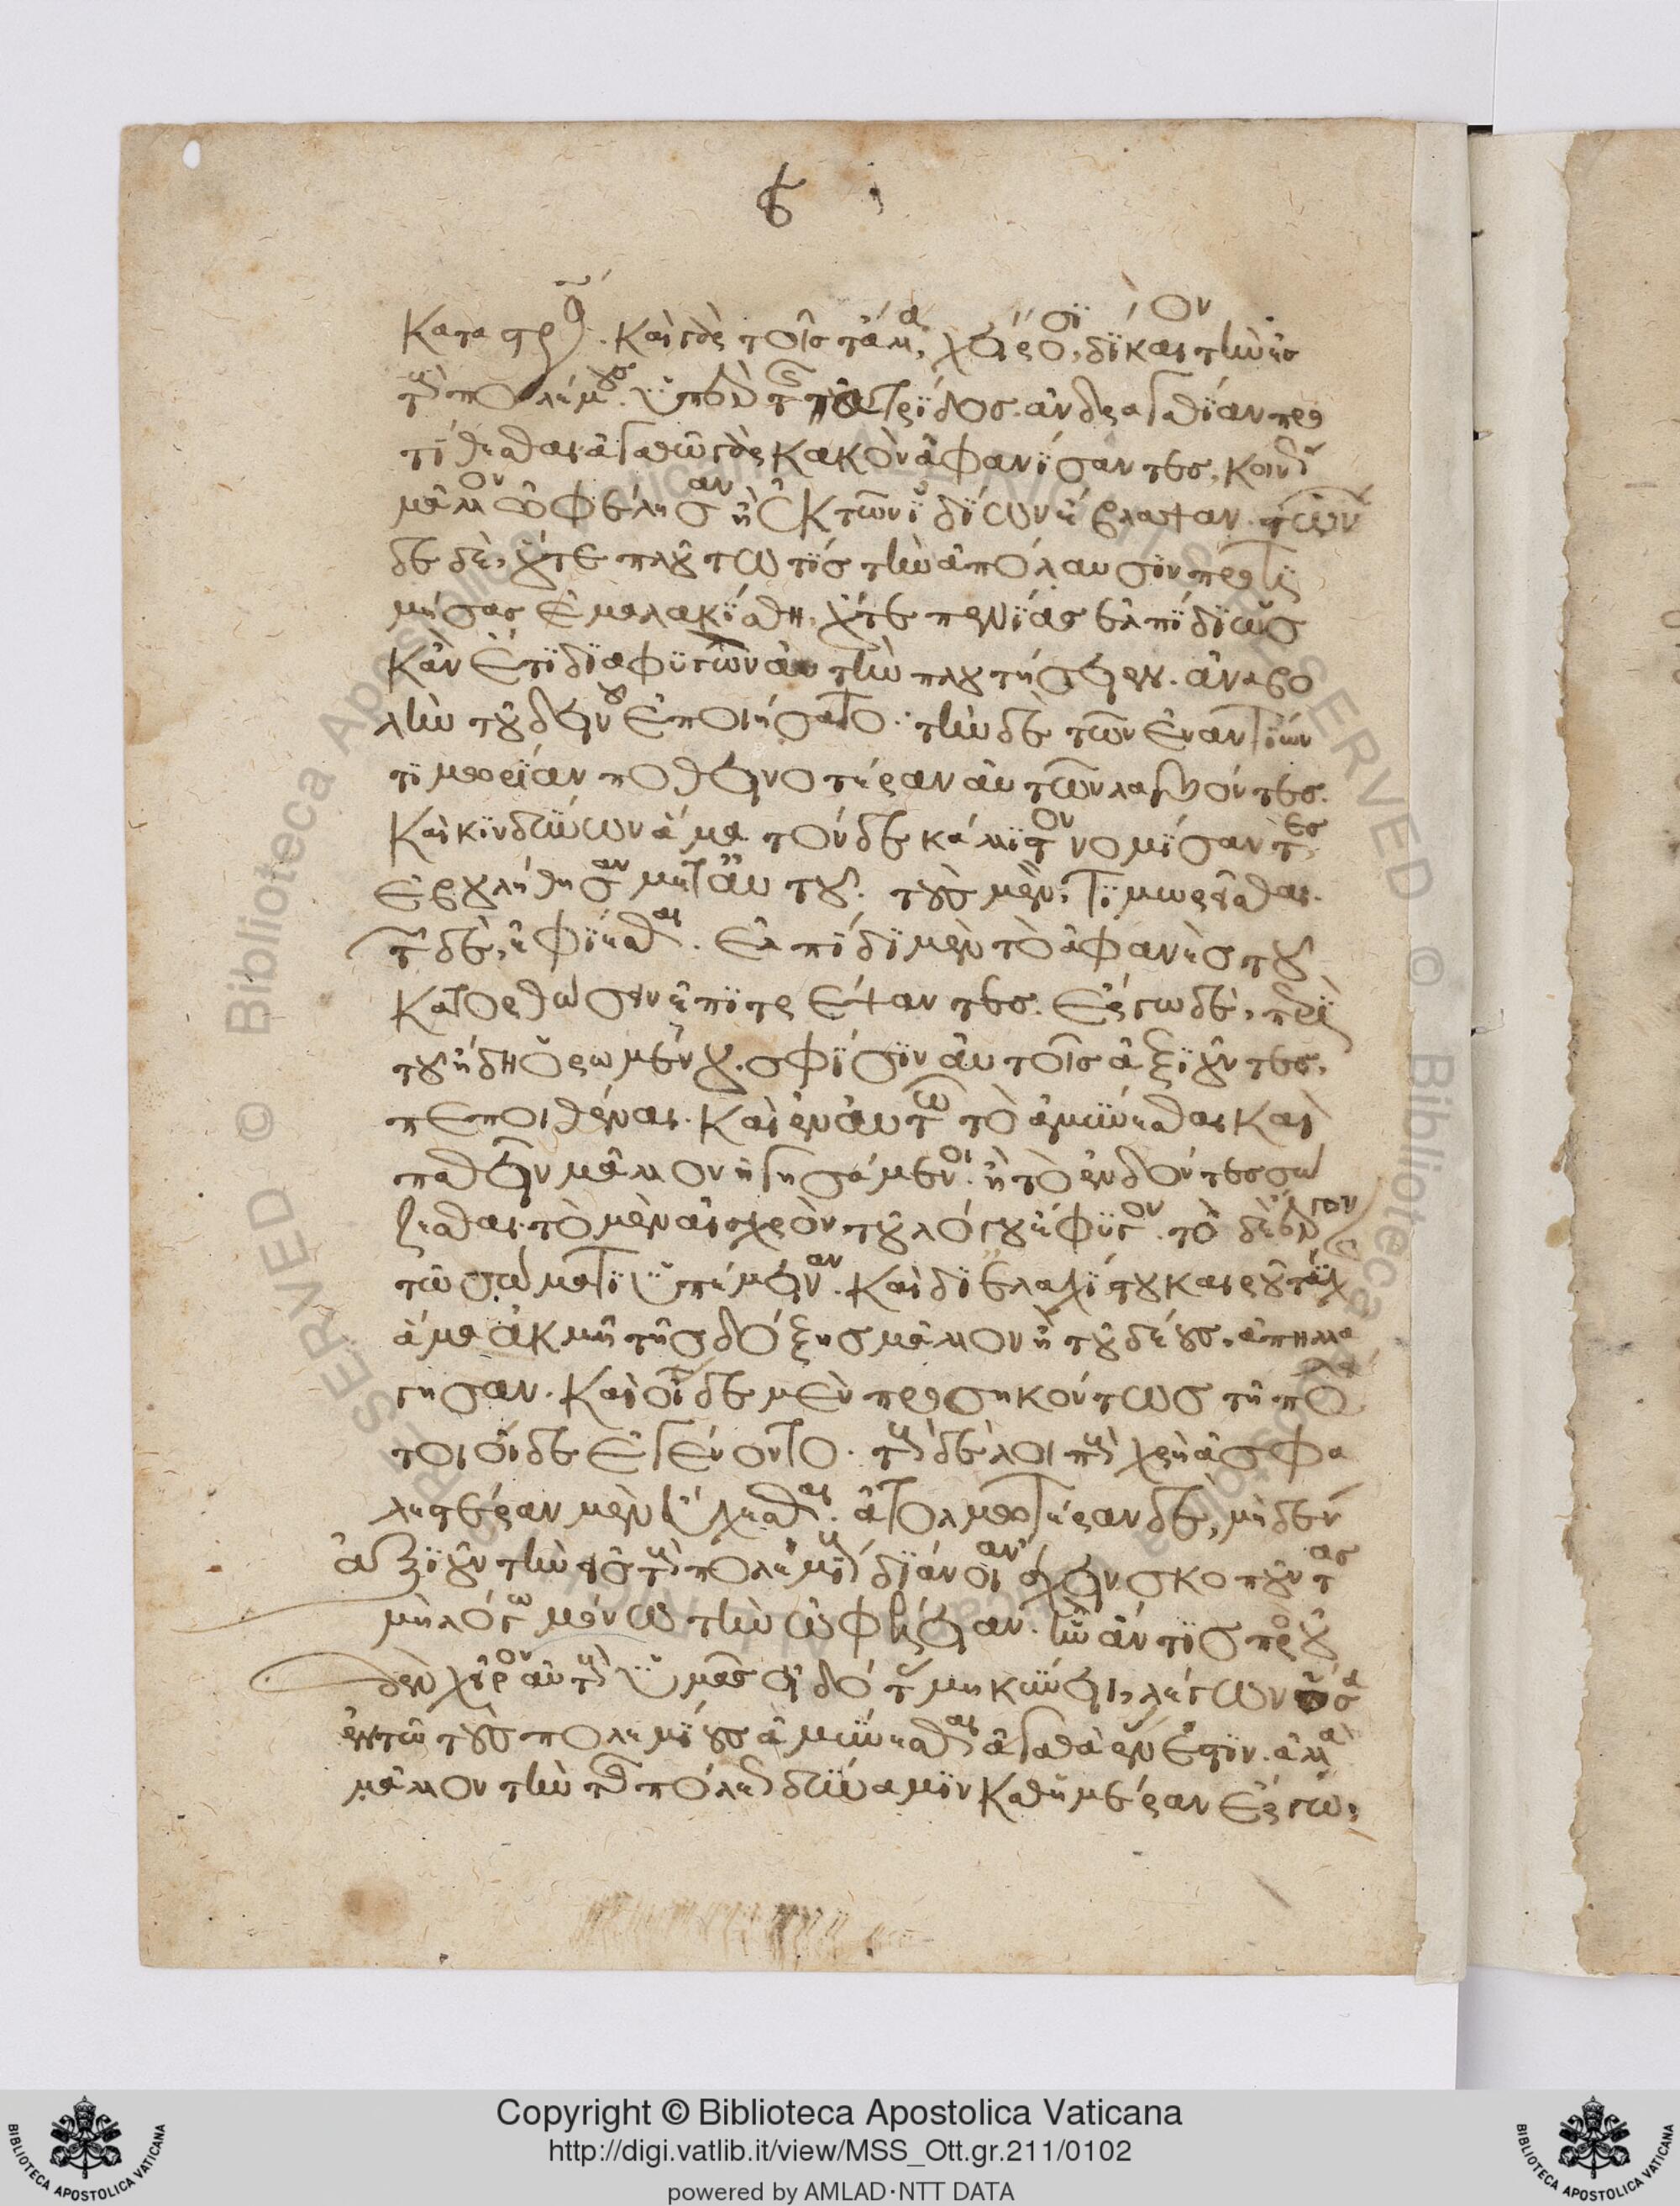 ϛ
καταστροφή. καὶ γὰρ τοῖς τἄλλα χείροσι, δίκαιον τὴν ἐς
τοὺς πολέμους ὑπὲρ τῆς πατρίδος ἀνδραγαθίαν προ
τίθεσθαι. ἀγαθῶ γὰρ κακὸν ἀφανίσαντες, κοινῶς
μᾶλλον ὠφέλησαν ἢ ἐκ τῶν ἰδίων ἔβλαψαν. τῶν
δε δὲ, οὔτε πλούτω τίς τὴν ἀπόλαυσιν προτι
μήσας ἐμαλακίσθη, οὔτε πενίας ἐλπίδι ὡς
κἂν ἔτι διαφυγὼν αὐτὴν πλουτήσειεν. ἀναβο
λὴν τοῦ δεινοῦ ἐποιήσατο. τὴν δε τῶν ἐναντίων
τιμωρίαν ποθεινοτέραν αὐτῶν λαβόντες.
καὶ κινδύνων ἅμα τόνδε κάλλιστον νομίσαντες,
ἐβουλήθησαν μετ' αὐτοῦ. τοὺς μὲν, τιμωρεῖσθαι.
τῶν δε, ἐφίεσθαι. ἐλπίδι μὲν τὸ ἀφανὲς τοῦ
κατορθώσειν ἐπιτρέψαντες. ἔργω δε, περὶ
τοῦ ἤδη ὁρωμένου. σφίσιν αὐτοῖς ἀξιοῦντες,
πεποιθέναι. καὶ ἐν αὐτῶ τὸ ἀμύνεσθαι καὶ
παθεῖν μᾶλλον ἡγησάμενοι. ἢ τὸ ἐνδόντες σώ
ζεσθαι. τὸ μὲν αἰσχρὸν τοῦ λόγου ἔφυγον. τὸ δ' ἔργον
τῶ σώματι ὑπέμειναν. καὶ δι' ἐλαχίστου καιροῦ τύχης
ἅμα ἀκμῆ τῆς δόξης μᾶλλον ἢ τοῦ δέους, ἀπηλλά
γησαν. καὶ οἵδε μὲν προσηκόντως τῆ πόλει
τοιοίδε ἐγένοντο. τοὺς δὲ λοιποὺς χρὴ ἀσφα
λεστέραν μὲν εὔχεσθαι. ἀτολμοτέραν δε, μηδὲν
ἀξιοῦν τὴν ἐς τοὺς πολεμίους διάνοιαν ἔχειν σκοποῦντας
μὴ λόγω μόνω τὴν ὠφέλειαν. ἣν ἄν τις πρὸς οὐ
δὲν χεῖρον αὐτοὺς ὑμᾶς εἰδότας μηκύνοι, λέγων ὅσα
ἐν τῶ τοὺς πολεμίους ἀμύνεσθαι ἀγαθὰ ἔνεστιν. ἀλλὰ
μᾶλλον τὴν τῆς πόλεως δύναμιν καθ' ἡμέραν ἔργω,
Copyright © Biblioteca Apostolica Vaticana
http://digi.vatlib.it/view/MSS_Ott.gr.211/0102
powered by AMLAD·NTT DATA